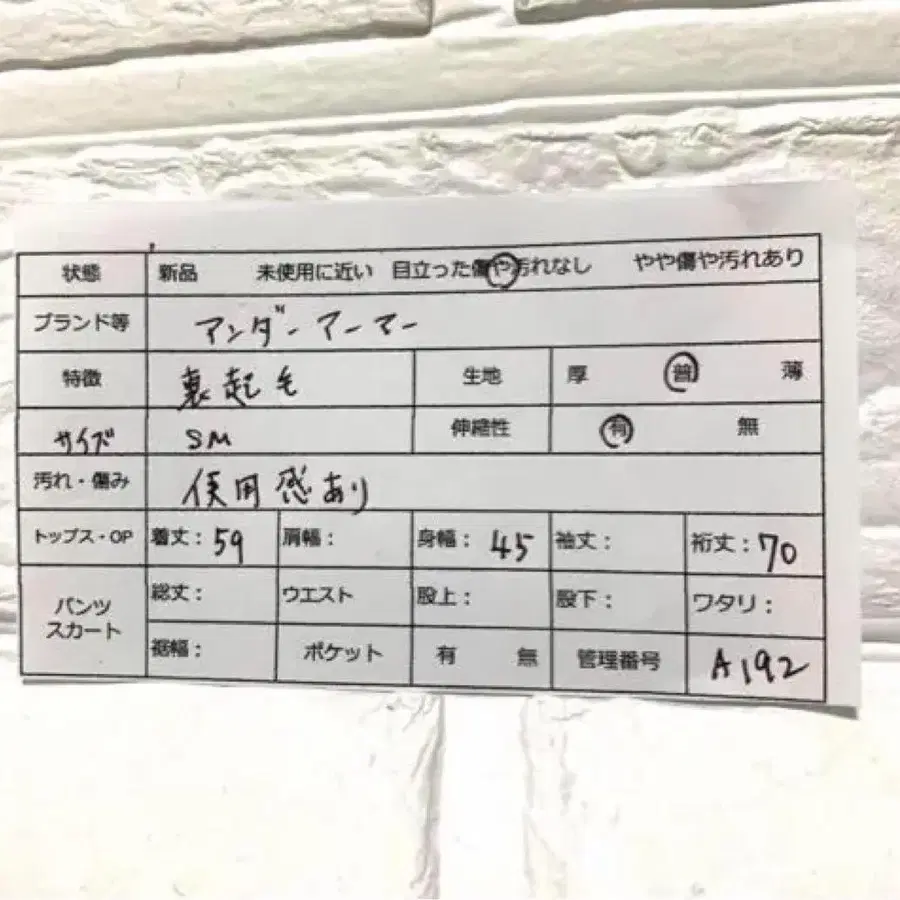 状態 新品 未使用に近い 目立った傷や汚れなし やや傷や汚れあり
ブランド等 アンダーアーマー
特徴 裏起毛 生地 厚 普 薄
サイズ SM 伸縮性 有 無
汚れ・傷み 使用感あり
トップス・OP 着丈: 59 肩幅: 身幅: 45 袖丈: 裄丈: 70
パンツ スカート 総丈: ウエスト 股上: 股下: ワタリ:
裾幅: ポケット 有 無 管理番号 A192